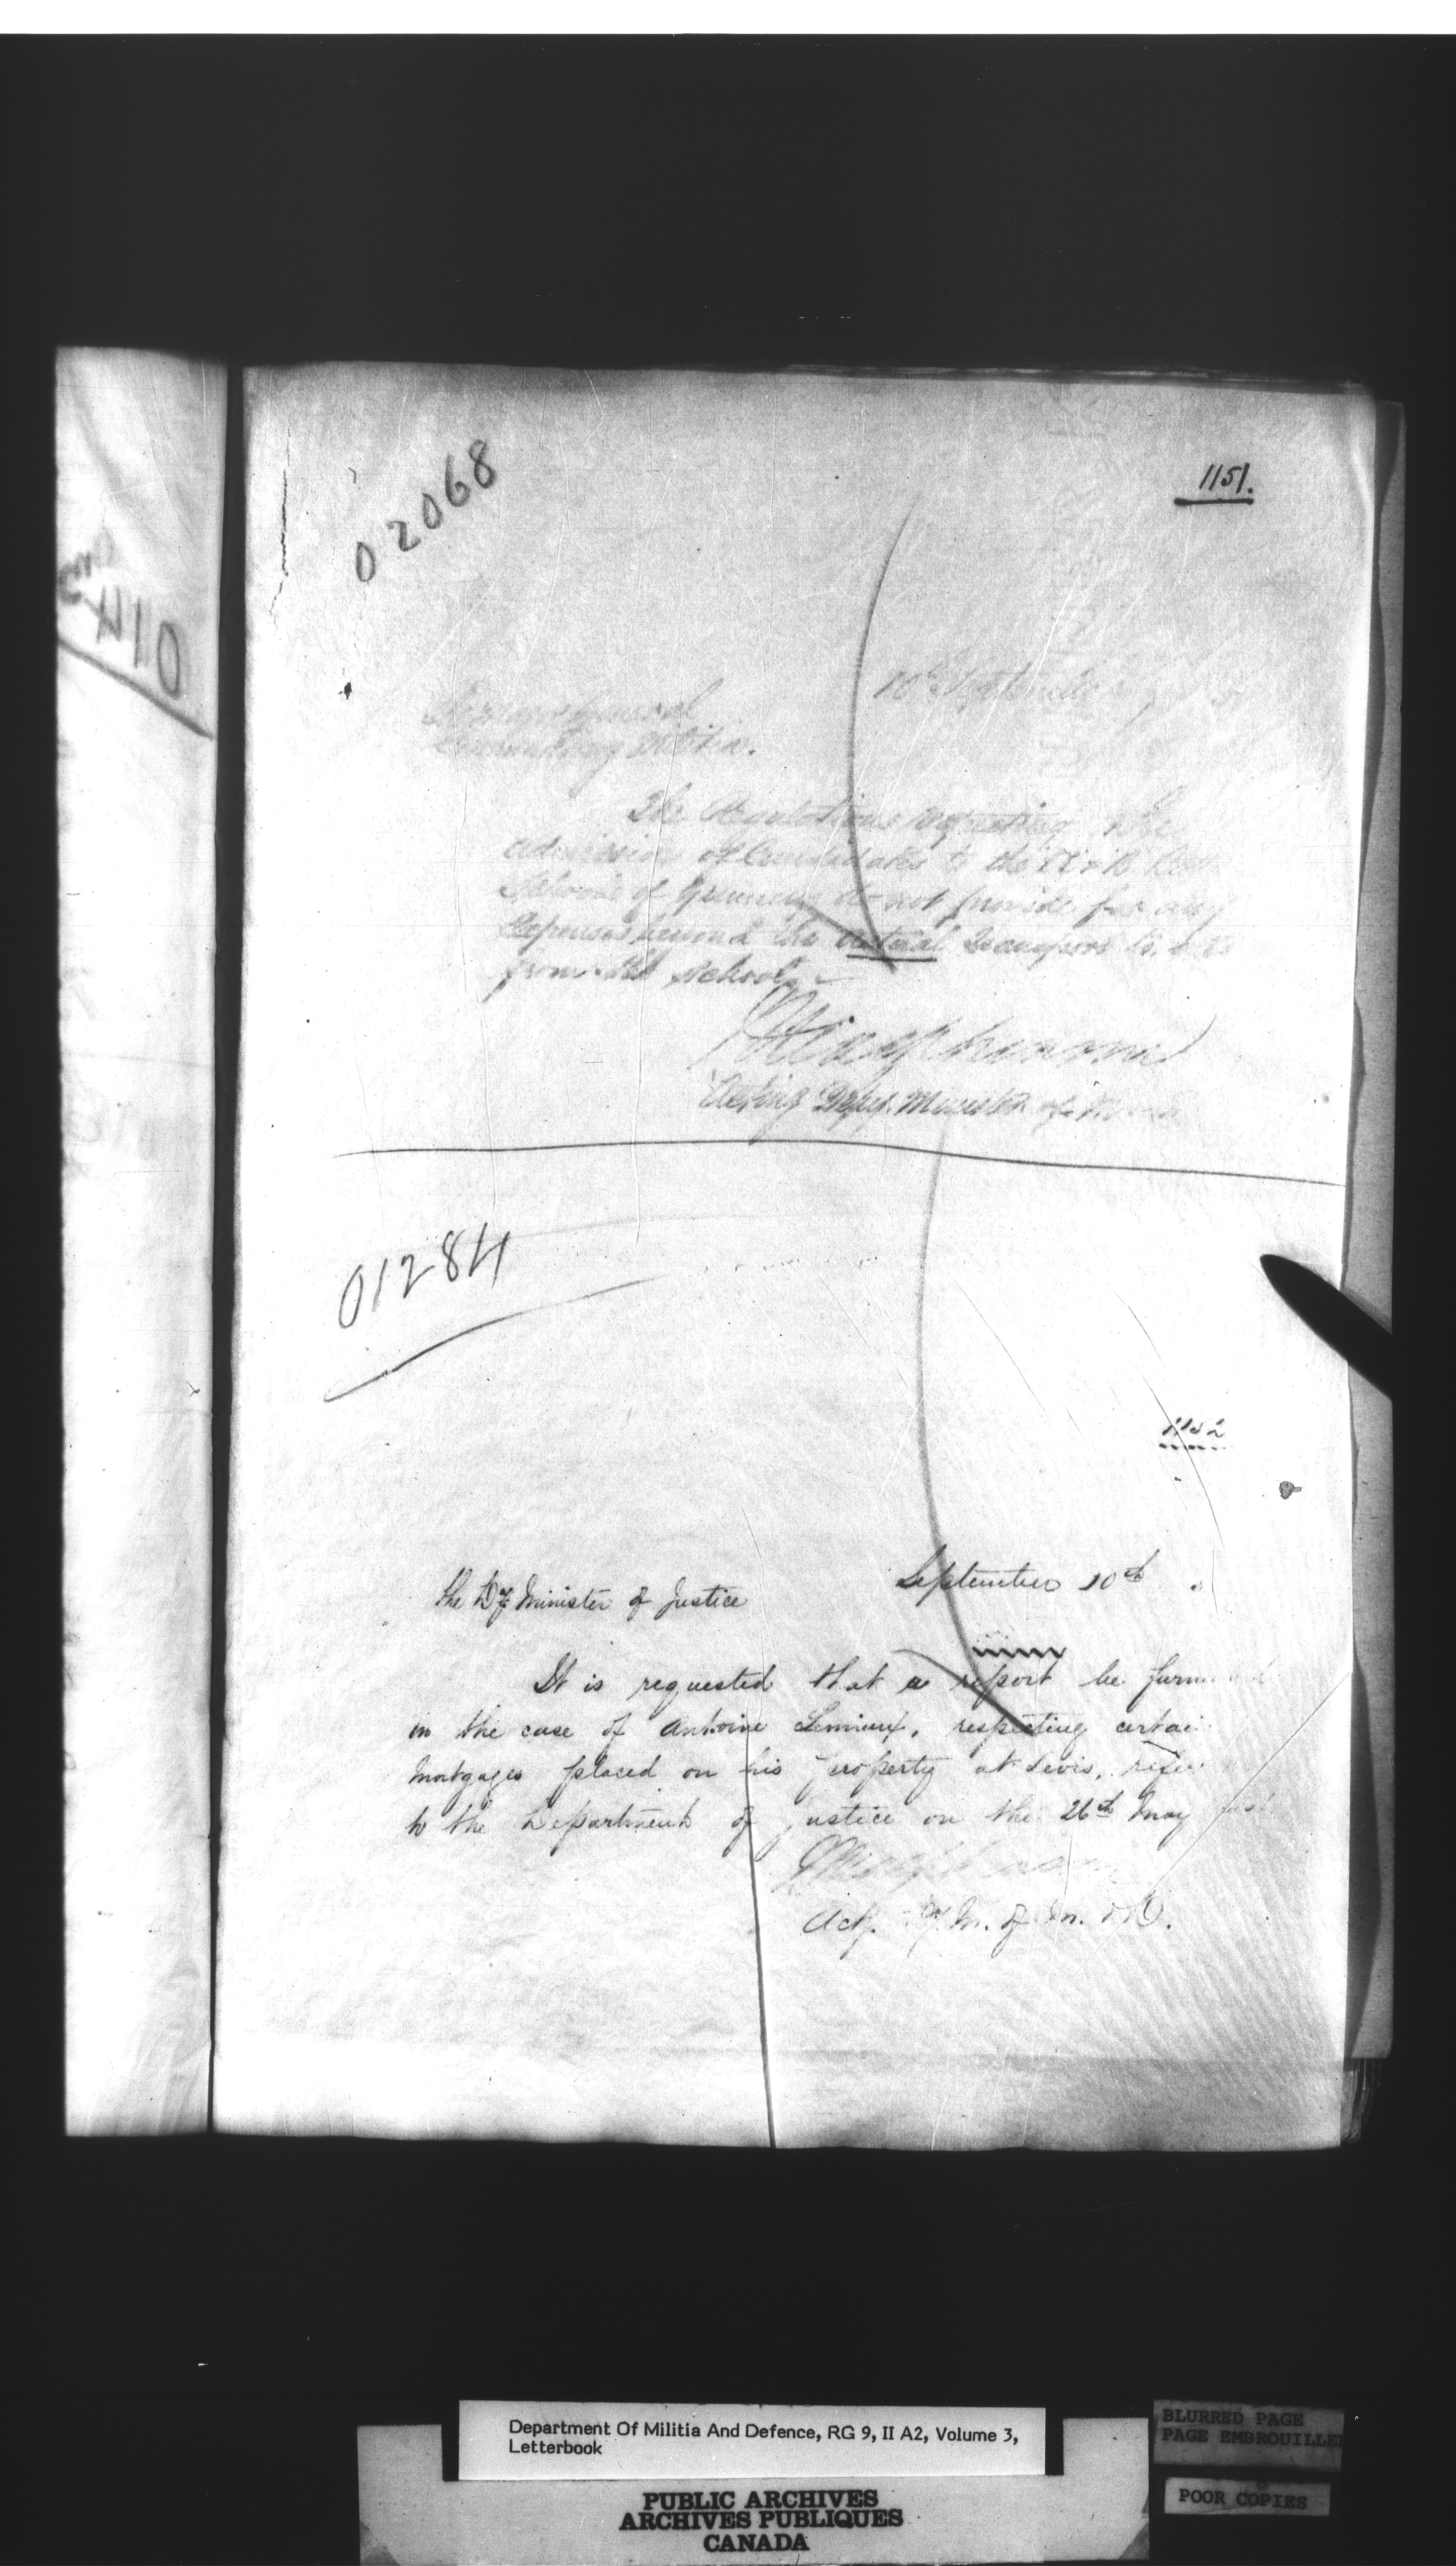 02068
1151.
10th Sept
General
Militia.
The Regulations respecting the
admission of Candidates to the A & B
Schools of Gunnery do not provide for any
Expenses beyond the actual transport to &
from the Schools
Acting Depy. Minister of
01284
1152
September 10th
The Dy Minister of Justice
It is requested that a report be
in the case of Antoine Lemieux, respecting certain
mortgages placed on his property at Levis,
to the Department of Justice on the 26th May
Actg. Dy. M. of M. & D.
014
Department Of Militia And Defence, RG 9, II A2, Volume 3,
Letterbook
BLURRED PAGE
PAGE EMBROUILLEE
POOR COPIES
PUBLIC ARCHIVES
ARCHIVES PUBLIQUES
CANADA